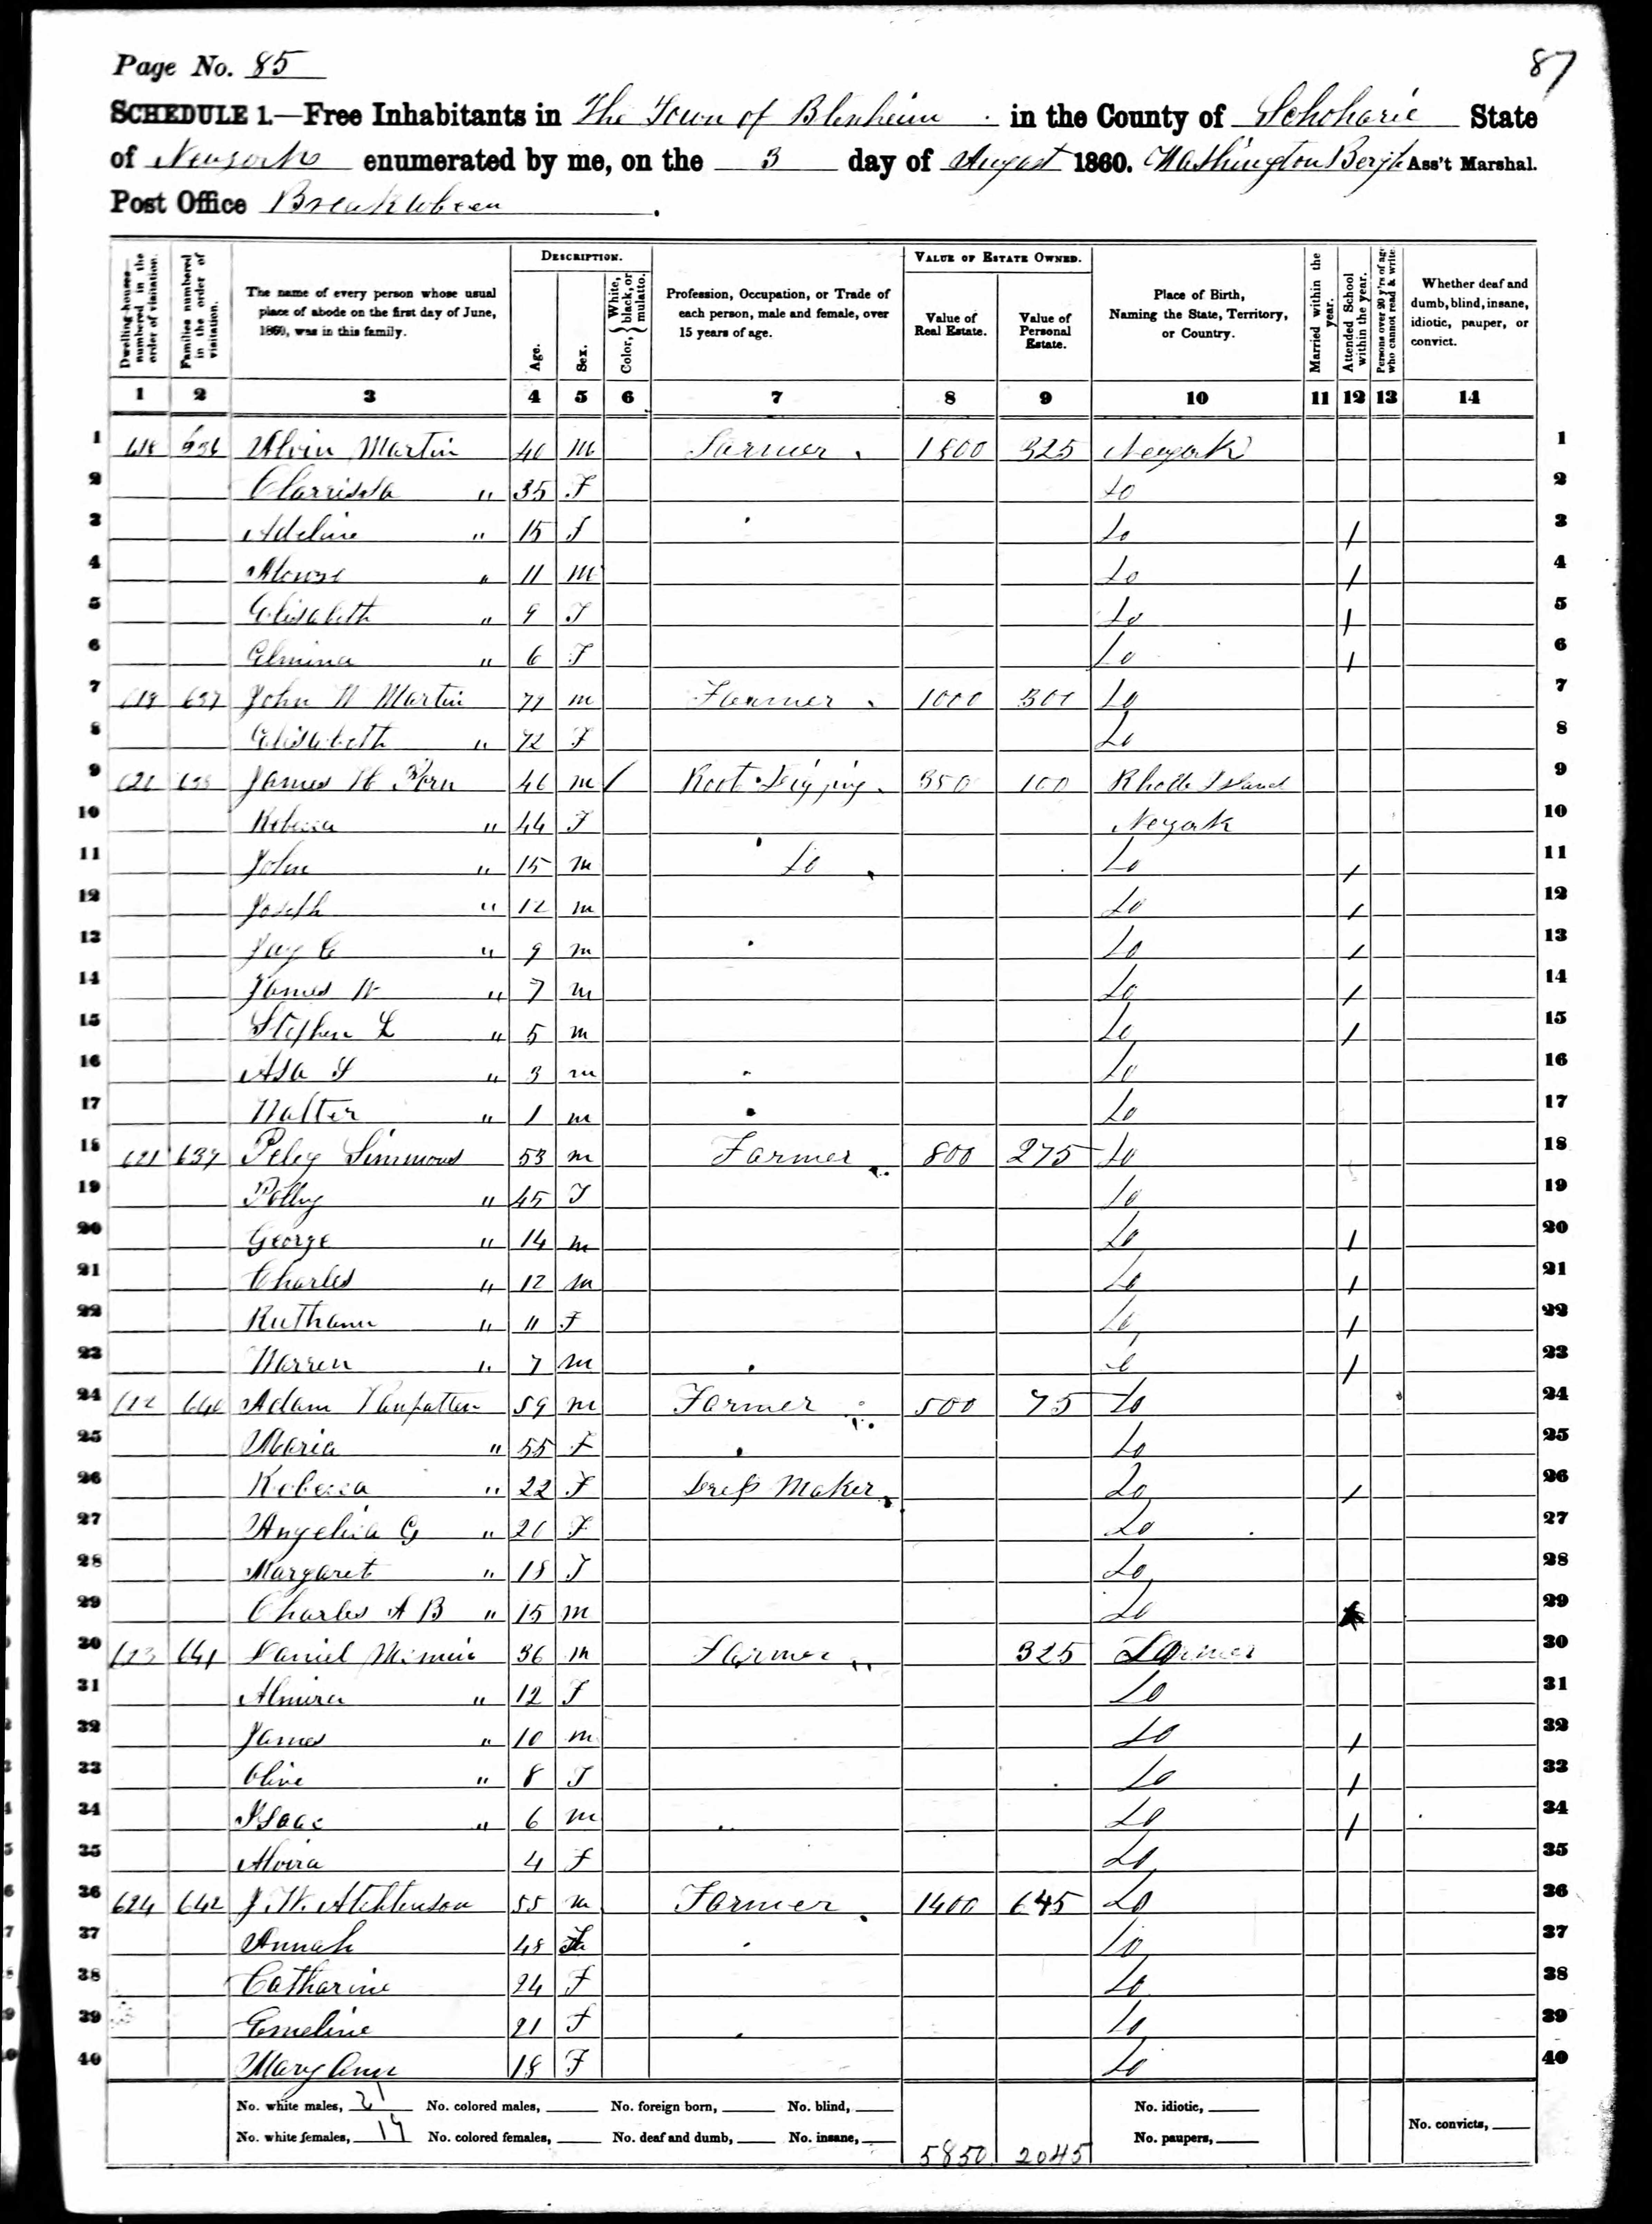 Page No. 85
87
SCHEDULE 1.—Free Inhabitants in The Town of Blenheim in the County of Schoharie State
of Newyork enumerated by me, on the 3 day of August 1860. Washington Bergh Ass't Marshal.
Post Office Breakabeen.
Dwelling-houses—numbered in the order of visitation.
Families numbered in the order of visitation.
The name of every person whose usual place of abode on the first day of June, 1860, was in this family.
DESCRIPTION.
Age.
Sex.
Color, { White, black, or mulatto.
Profession, Occupation, or Trade of each person, male and female, over 15 years of age.
VALUE OF ESTATE OWNED.
Value of Real Estate.
Value of Personal Estate.
Place of Birth, Naming the State, Territory, or Country.
Married within the year.
Attended School within the year.
Persons over 20 y'rs of age who cannot read & write.
Whether deaf and dumb, blind, insane, idiotic, pauper, or convict.
1 2 3 4 5 6 7 8 9 10 11 12 13 14
1 618 636 Alvin Martin 40 m Farmer 1800 325 Neyork 1
2 Clarrissa " 35 F Do 2
3 Adeline " 15 F Do / 3
4 Alonzo " 11 m Do / 4
5 Elisabeth " 9 F Do / 5
6 Elmina " 6 F Do / 6
7 619 637 John W Martin 71 m Farmer 1000 300 Do 7
8 Elisabeth " 72 F Do 8
9 620 638 James H 46 m / Root Digging 350 100 Rhode Island 9
10 Rebecca " 44 F Neyork 10
11 John " 15 m Do Do / 11
12 Joseph " 12 m Do / 12
13 Jay C " 9 m Do / 13
14 James W " 7 m Do / 14
15 Stephen L " 5 m Do / 15
16 Asa S " 3 m Do 16
17 Walter " 1 m Do 17
18 621 639 Peleg Simmons 53 m Farmer 800 275 Do 18
19 Polly " 45 F Do 19
20 George " 14 m Do / 20
21 Charles " 12 m Do / 21
22 Ruthann " 11 F Do / 22
23 Warren " 7 m Do / 23
24 622 640 Adam Vanpatten 59 m Farmer 500 75 Do 24
25 Maria " 55 F Do 25
26 Rebecca " 22 F Dress Maker Do / 26
27 Angelica G " 20 F Do 27
28 Margaret " 18 F Do 28
29 Charles A B " 15 m Do 29
30 623 641 Daniel 36 m Farmer 325 Do 30
31 Almira " 12 F Do 31
32 James " 10 m Do / 32
33 Olive " 8 F Do / 33
34 Isaac " 6 m Do / 34
35 Alvira 4 F Do 35
36 624 642 J. W. 55 m Farmer 1400 645 Do 36
37 Annah 48 F Do 37
38 Catharine 24 F Do 38
39 Emeline 21 F Do 39
40 Mary Ann 18 F Do 40
No. white males, 21 No. colored males, No. foreign born, No. blind, No. idiotic,
No. white females, 19 No. colored females, No. deaf and dumb, No. insane, 5850 2045 No. paupers, No. convicts,